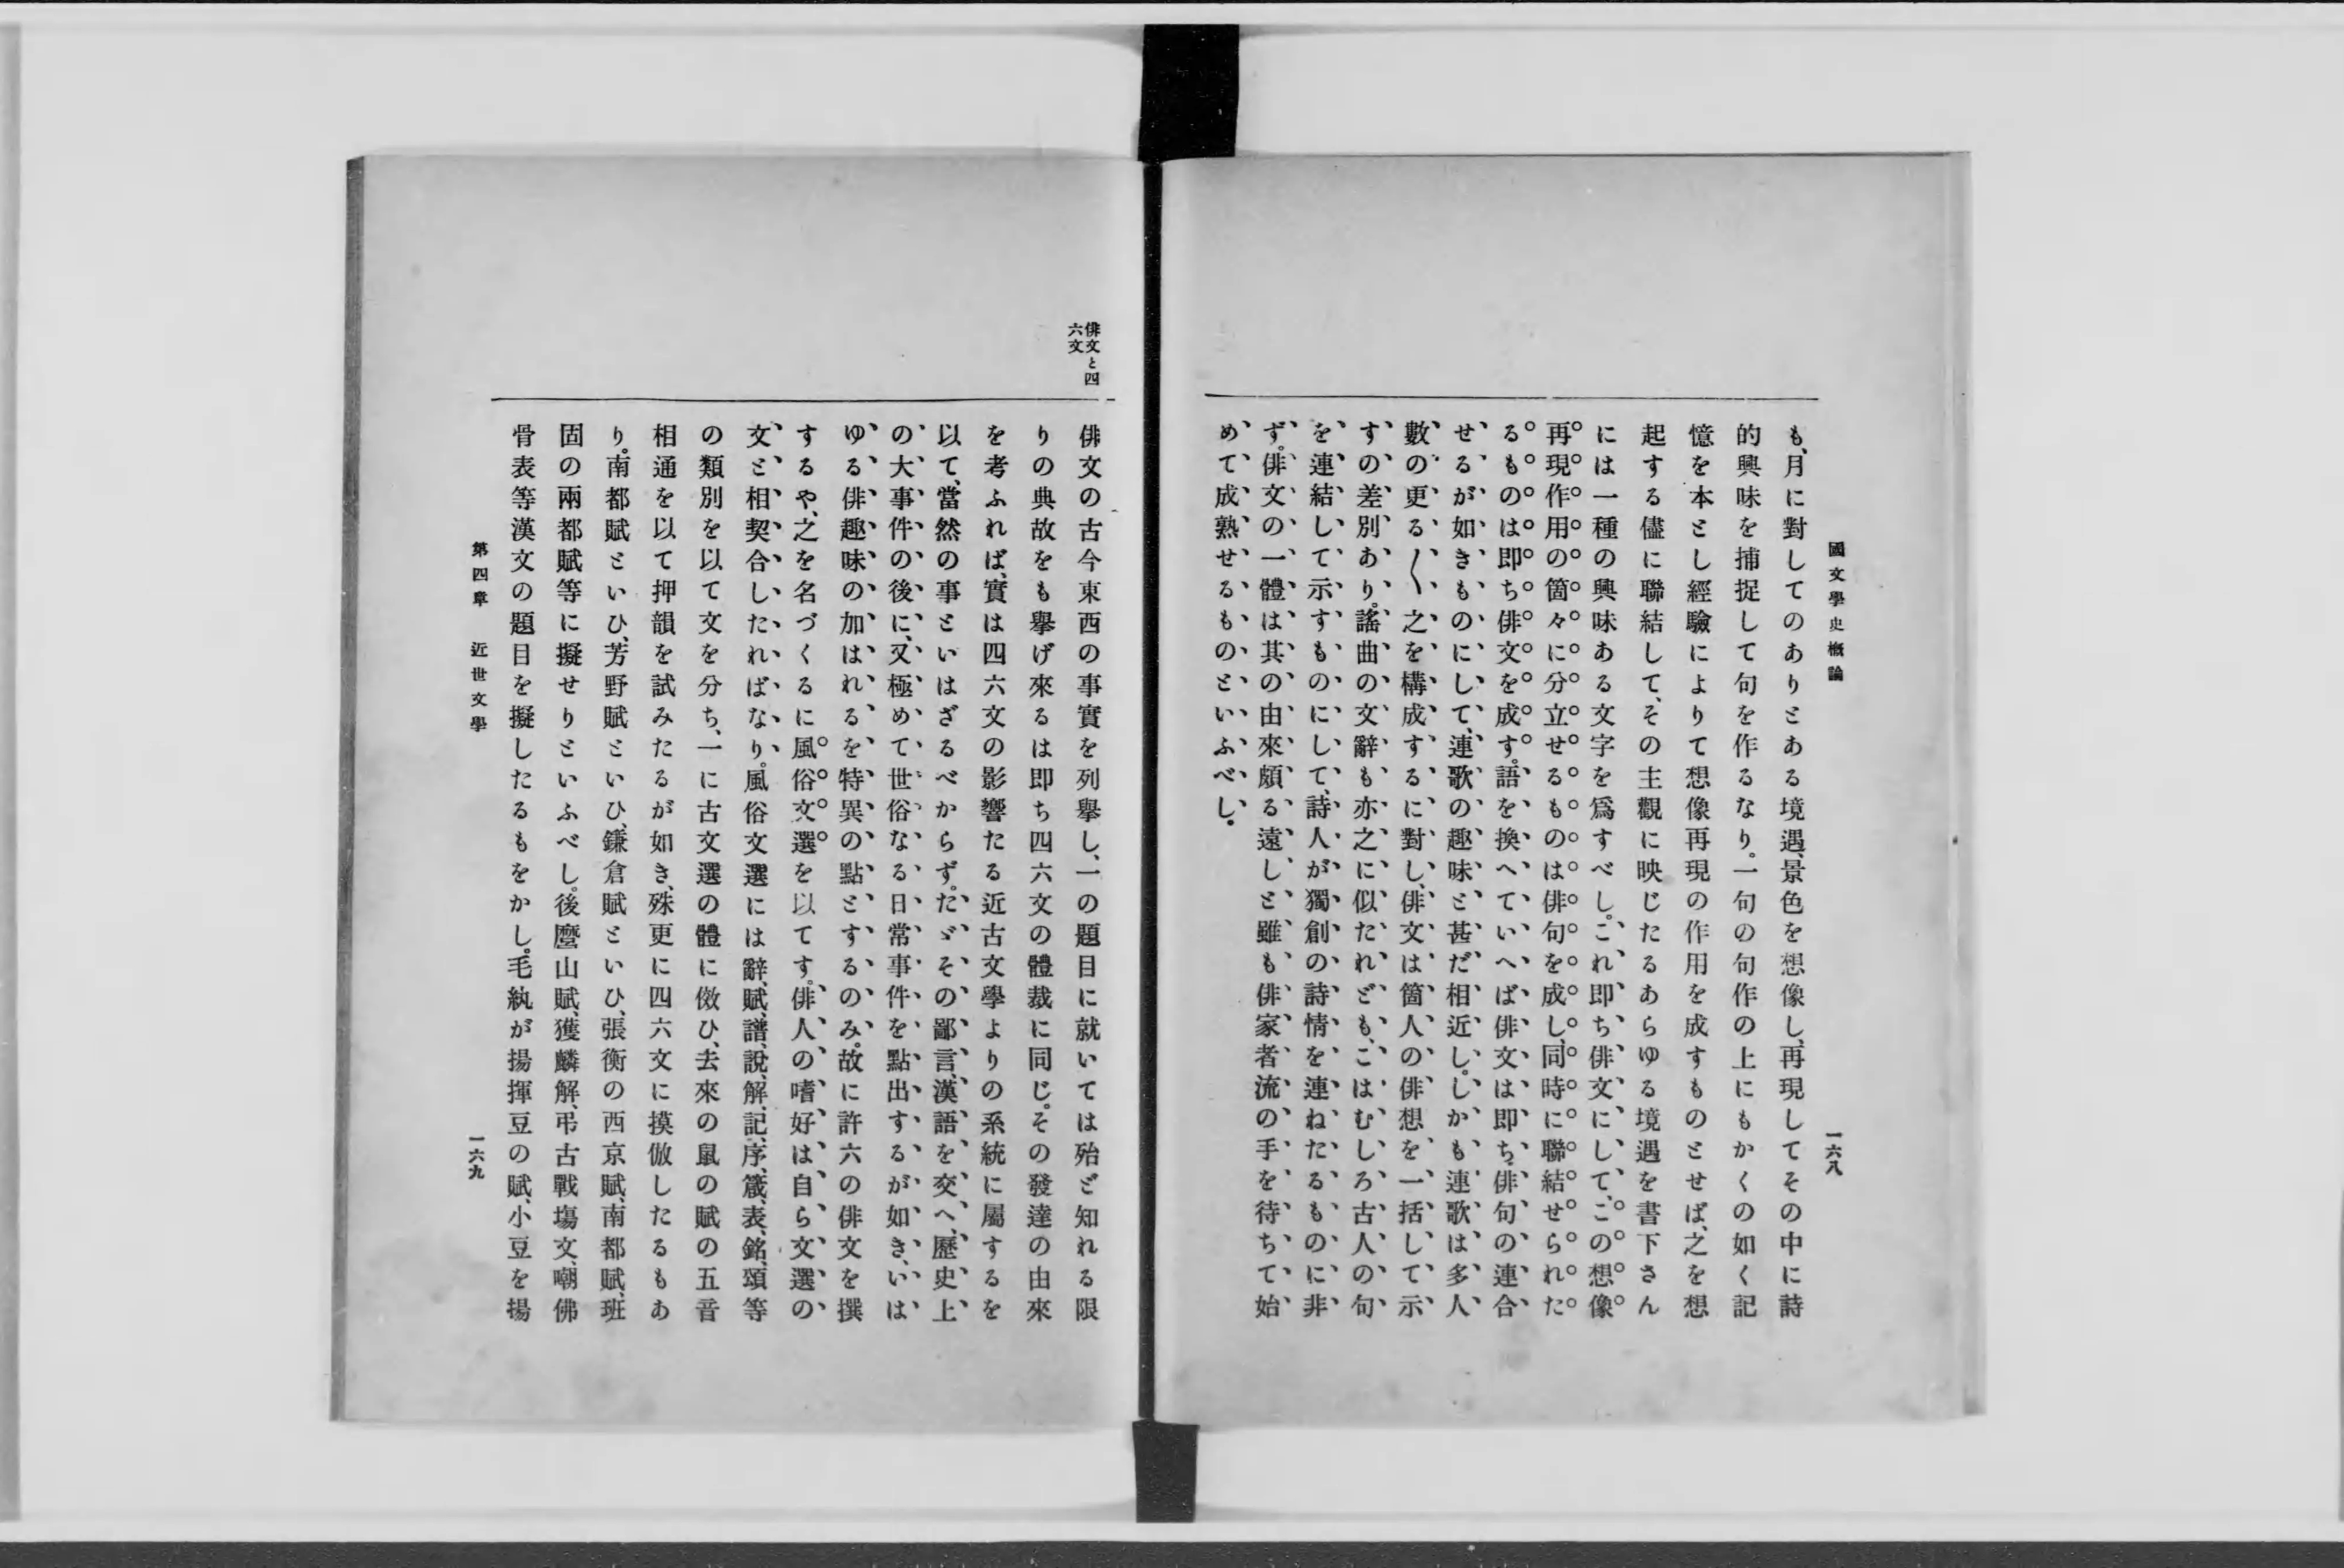 國文學史概論
一六八
も、月に對してのありとある境遇、景色を想像し、再現してその中に詩
的興味を捕捉して句を作るなり。一句の句作の上にもかくの如く記
憶を本とし經驗によりて想像再現の作用を成すものとせば、之を想
起する儘に聯結して、その主觀に映じたるあらゆる境遇を書下さん
には一種の興味ある文字を爲すべし。これ即ち俳文にして、この想像
再現作用の箇々に分立せるものは俳句を成し、同時に聯結せられた
るものは即ち俳文を成す。語を換へていへば俳文は即ち俳句の連合
せるが如きものにして、連歌の趣味と甚だ相近し。しかも連歌は多人
數の更る〱之を構成するに對し、俳文は箇人の俳想を一括して示
すの差別あり。謠曲の文辭も亦之に似たれども、こはむしろ古人の句
を連結して示すものにして、詩人が獨創の詩情を連ねたるものに非
ず。俳文の一體は其の由來頗る遠しと雖も俳家者流の手を待ちて始
めて成熟せるものといふべし。
俳文と四
六文
俳文の古今東西の事實を列擧し、一の題目に就いては殆ど知れる限
りの典故をも擧げ來るは即ち四六文の體裁に同じ。その發達の由來
を考ふれば、實は四六文の影響たる近古文學よりの系統に屬するを
以て、當然の事といはざるべからず。たゞその鄙言、漢語を交へ、歷史上
の大事件の後に、又極めて世俗なる日常事件を點出するが如き、いは
ゆる俳趣味の加はれるを特異の點とするのみ。故に許六の俳文を撰
するや、之を名づくるに風俗文選を以てす。俳人の嗜好は自ら文選の
文と相契合したればなり。風俗文選には辭、賦、譜、說、解、記、序、箴、表、銘、頌等
の類別を以て文を分ち、一に古文選の體に傚ひ、去來の鼠の賦の五音
相通を以て押韻を試みたるが如き、殊更に四六文に摸倣したるもあ
り。南都賦といひ、芳野賦といひ、鎌倉賦といひ、張衡の西京賦、南都賦、班
固の兩都賦等に擬せりといふべし。後麿山賦、獲麟解、弔古戰場文、嘲佛
骨表等漢文の題目を擬したるもをかし。毛紈が揚揮豆の賦、小豆を揚
第四章　近世文學
一六九